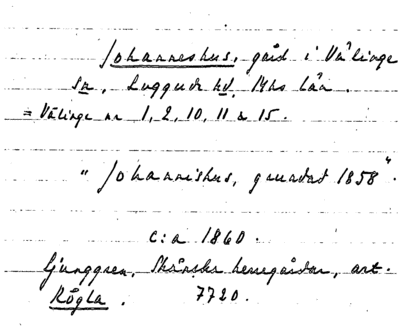 Johanneshus, gård i Välinge
sn, Luggude hd, Mhs län.
= Välinge nr 1, 2, 10, 11 o 15.
"Johannishus, grundat 1858".
c:a 1860.
Ljunggren, Skånska herregårdar, art.
Rögla. 7720.